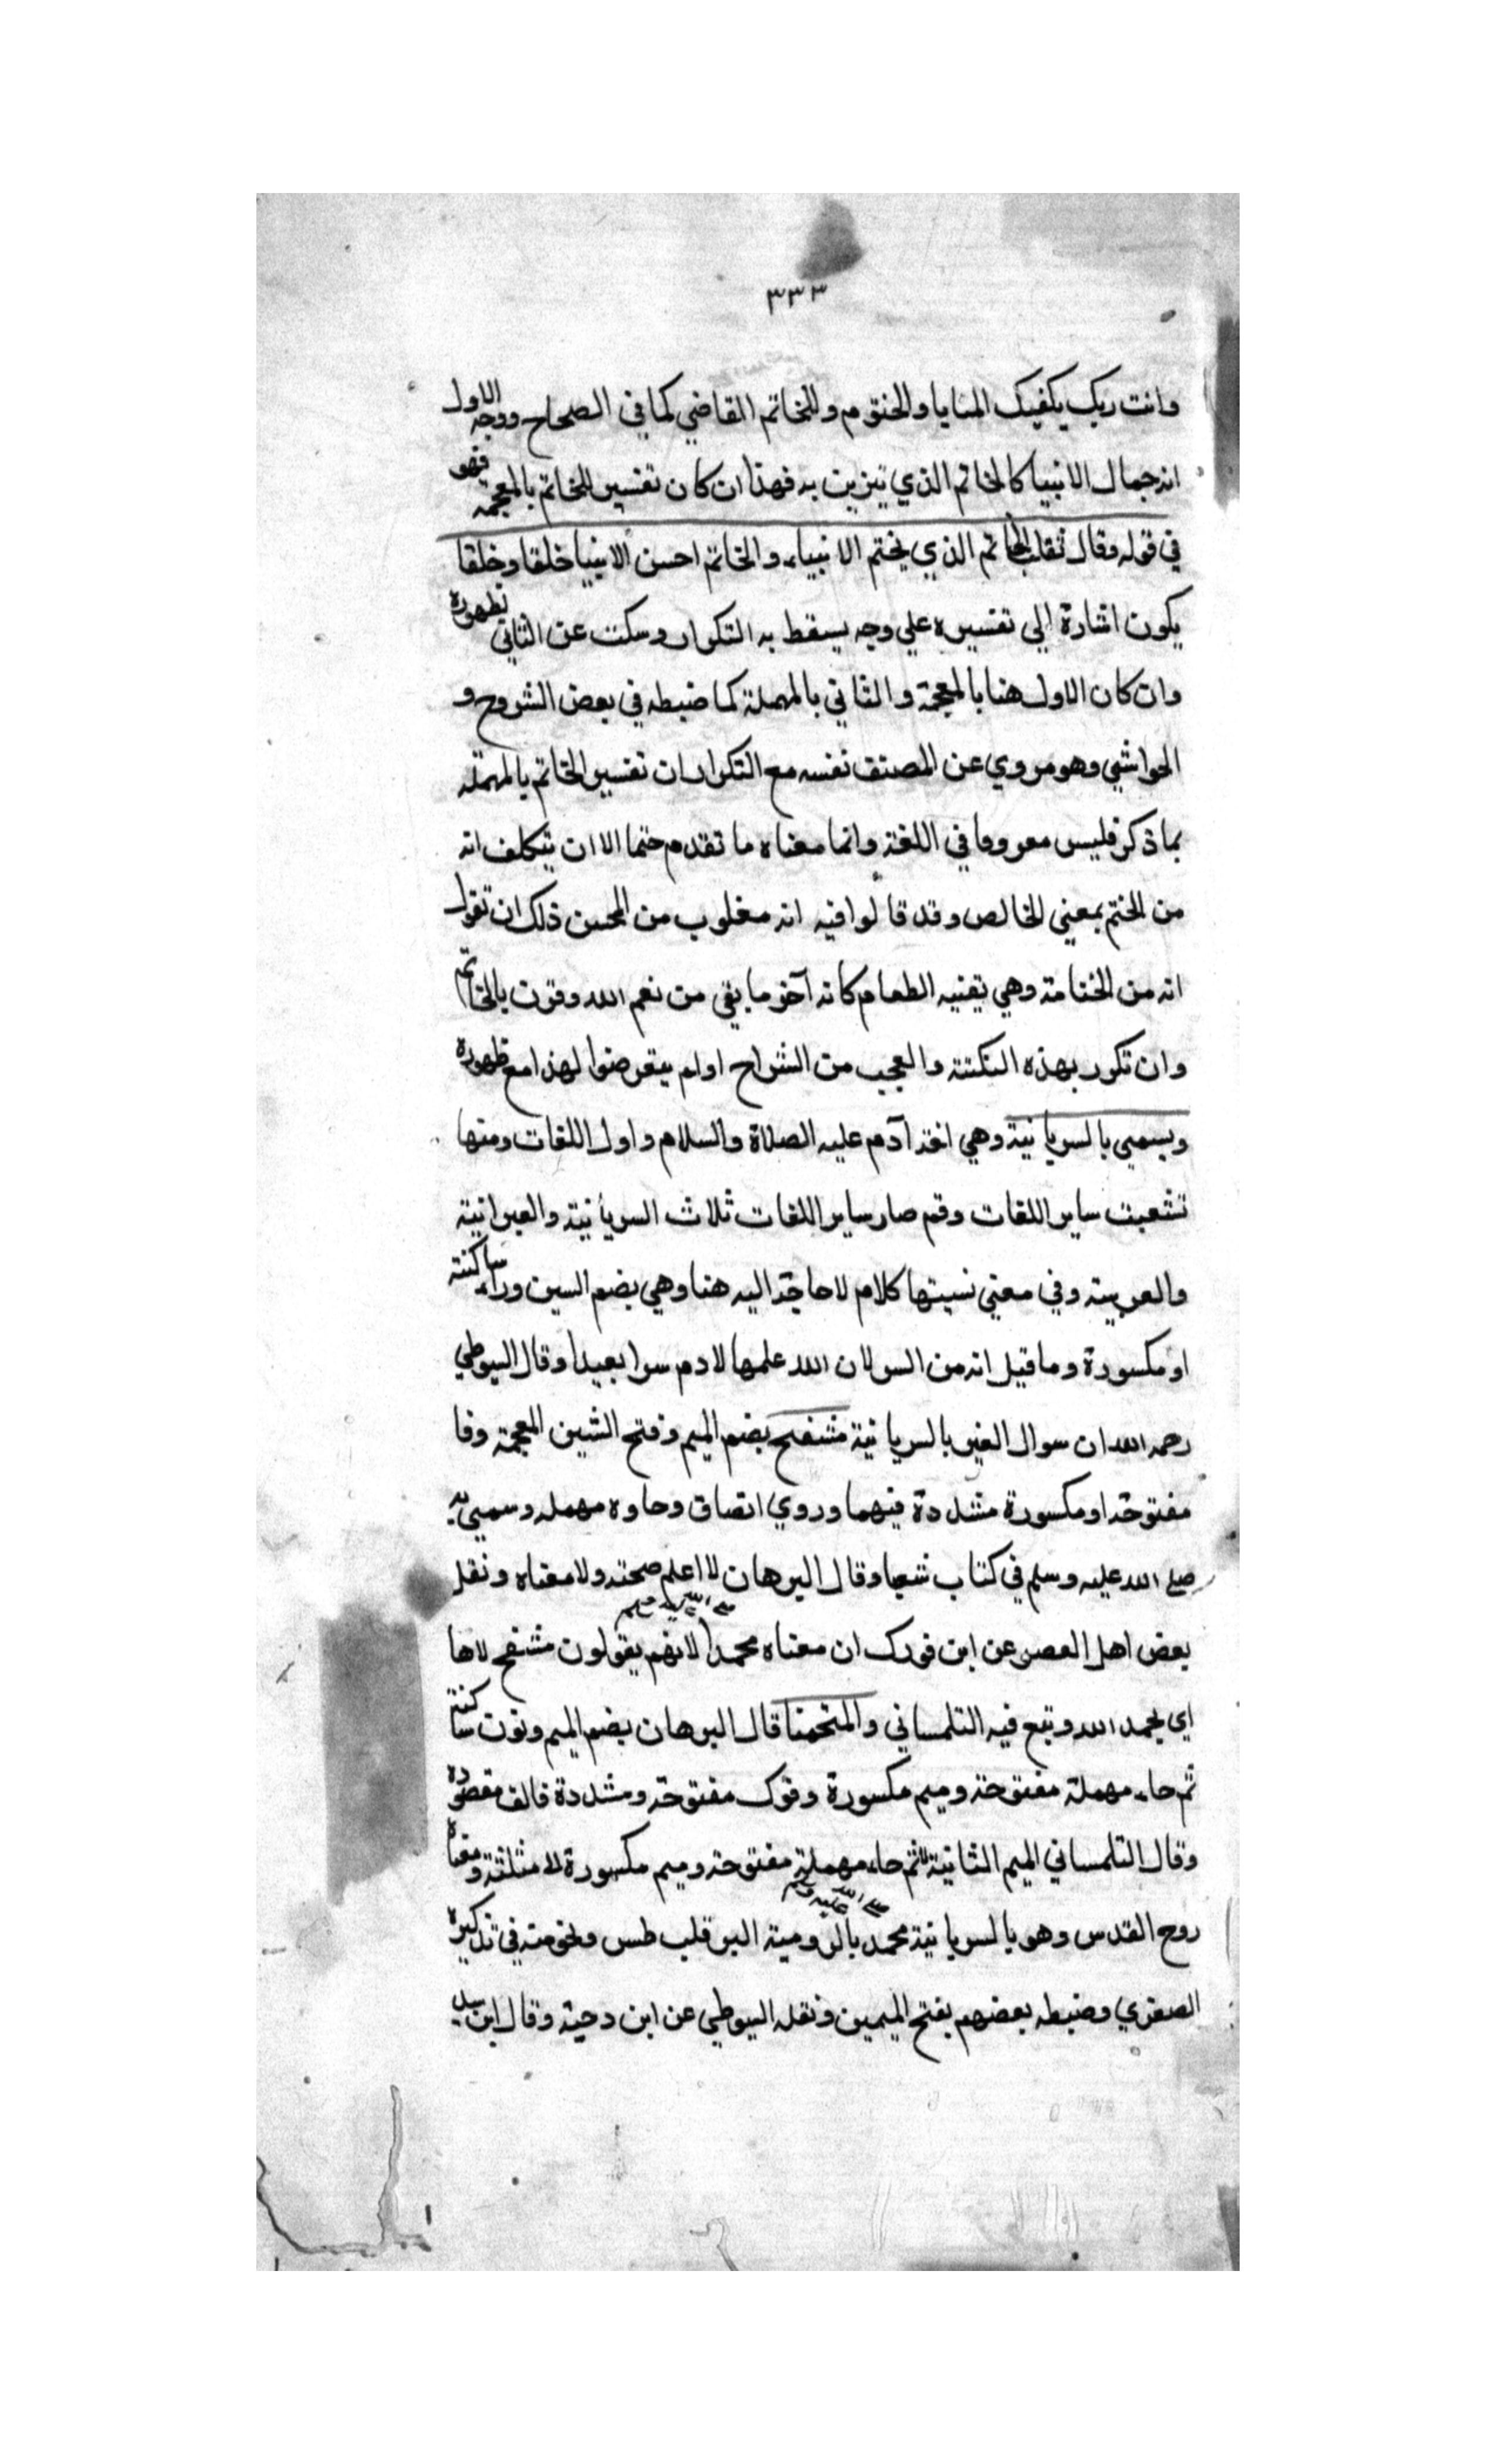 ٣٣٣
وانت ربك يكفيك المنايا والحنتوم والخاتم القاضي كما في الصحاح ووجه الاول
انه جمال الانبيا كالخاتم الذي يتزين به فهذا ان كان تفسير للخاتم بالمعجمه فهو
في قوله وقال ثعلب الخاتم الذي يختم الانبياء والخاتم احسن الانبيا خلقا وخلقا
يكون اشارة الي تفسيره علي وجه يسقط به التكرار وسكت عن الثاني لظهوره
وان كان الاول هنا بالمعجمة والثاني بالمهملة كما ضبطه في بعض الشروح و
الحواشي وهو مروي عن المصنف نفسه مع التكرار ان تفسير الخاتم بالمهمله
بما ذكر فليس معروفا في اللغة وانما معناه ما تقدم حتما الا ان يتكلف انه
من الختم بمعني الخالص وقد قالوا فيه انه مغلوب من المحسن ذلك ان تقول
انه من الختامة وهي بقنيه الطعام كانه آخر ما بقي من نعم الله وقرن بالخاتم
وان تكرر بهذه النكتة والعجب من الشراح اولم يتعرضوا لهذا مع ظهوره
ويسمي بالسريانية وهي لغة آدم عليه الصلاة والسلام واول اللغات ومنها
تشعبت ساير اللغات وقم صار ساير اللغات ثلاث السريانية والعبرانية
والعربية وفي معني نسبتها كلام لا حاجة اليه هنا وهي بضم السين وراء ساكنة
او مكسورة وما قيل انه من السر لان الله علمها لادم سرا بعيدا وقال السيوطي
رحمه الله ان سوال القبر بالسريانية مشفح بضم الميم وفتح الشين المعجمة وفا
مفتوحة او مكسورة مشددة فيهما وروي انقاف وحاوه مهمله وسمي به
صلي الله عليه وسلم في كتاب شعيا وقال البرهان لا اعلم صحته ولا معناه ونقل
بعض اهل العصر عن ابن فورك ان معناه محمدا صلي الله عليه وسلم لانهم يقولون مشفح لاها
اي يحمد الله وتبع فيه التلمساني والمنحمنا قال البرهان بضم الميم ونون ساكنة
ثم حاء مهملة مفتوحة وميم مكسورة وفوك مفتوحة ومشددة فالف مقصورة
وقال التلمساني الميم الثانية ثم حاء مهملة مفتوحة وميم مكسورة لا مثلثة ومعناه
روح القدس وهو بالسريانية محمد صلي الله عليه وسلم بالرومية البرقليطس ونحومنه في تذكيره
الصفدي وضبطه بعضهم بفتح الميمين ونقله السيوطي عن ابن دحية وقال ابن سيد